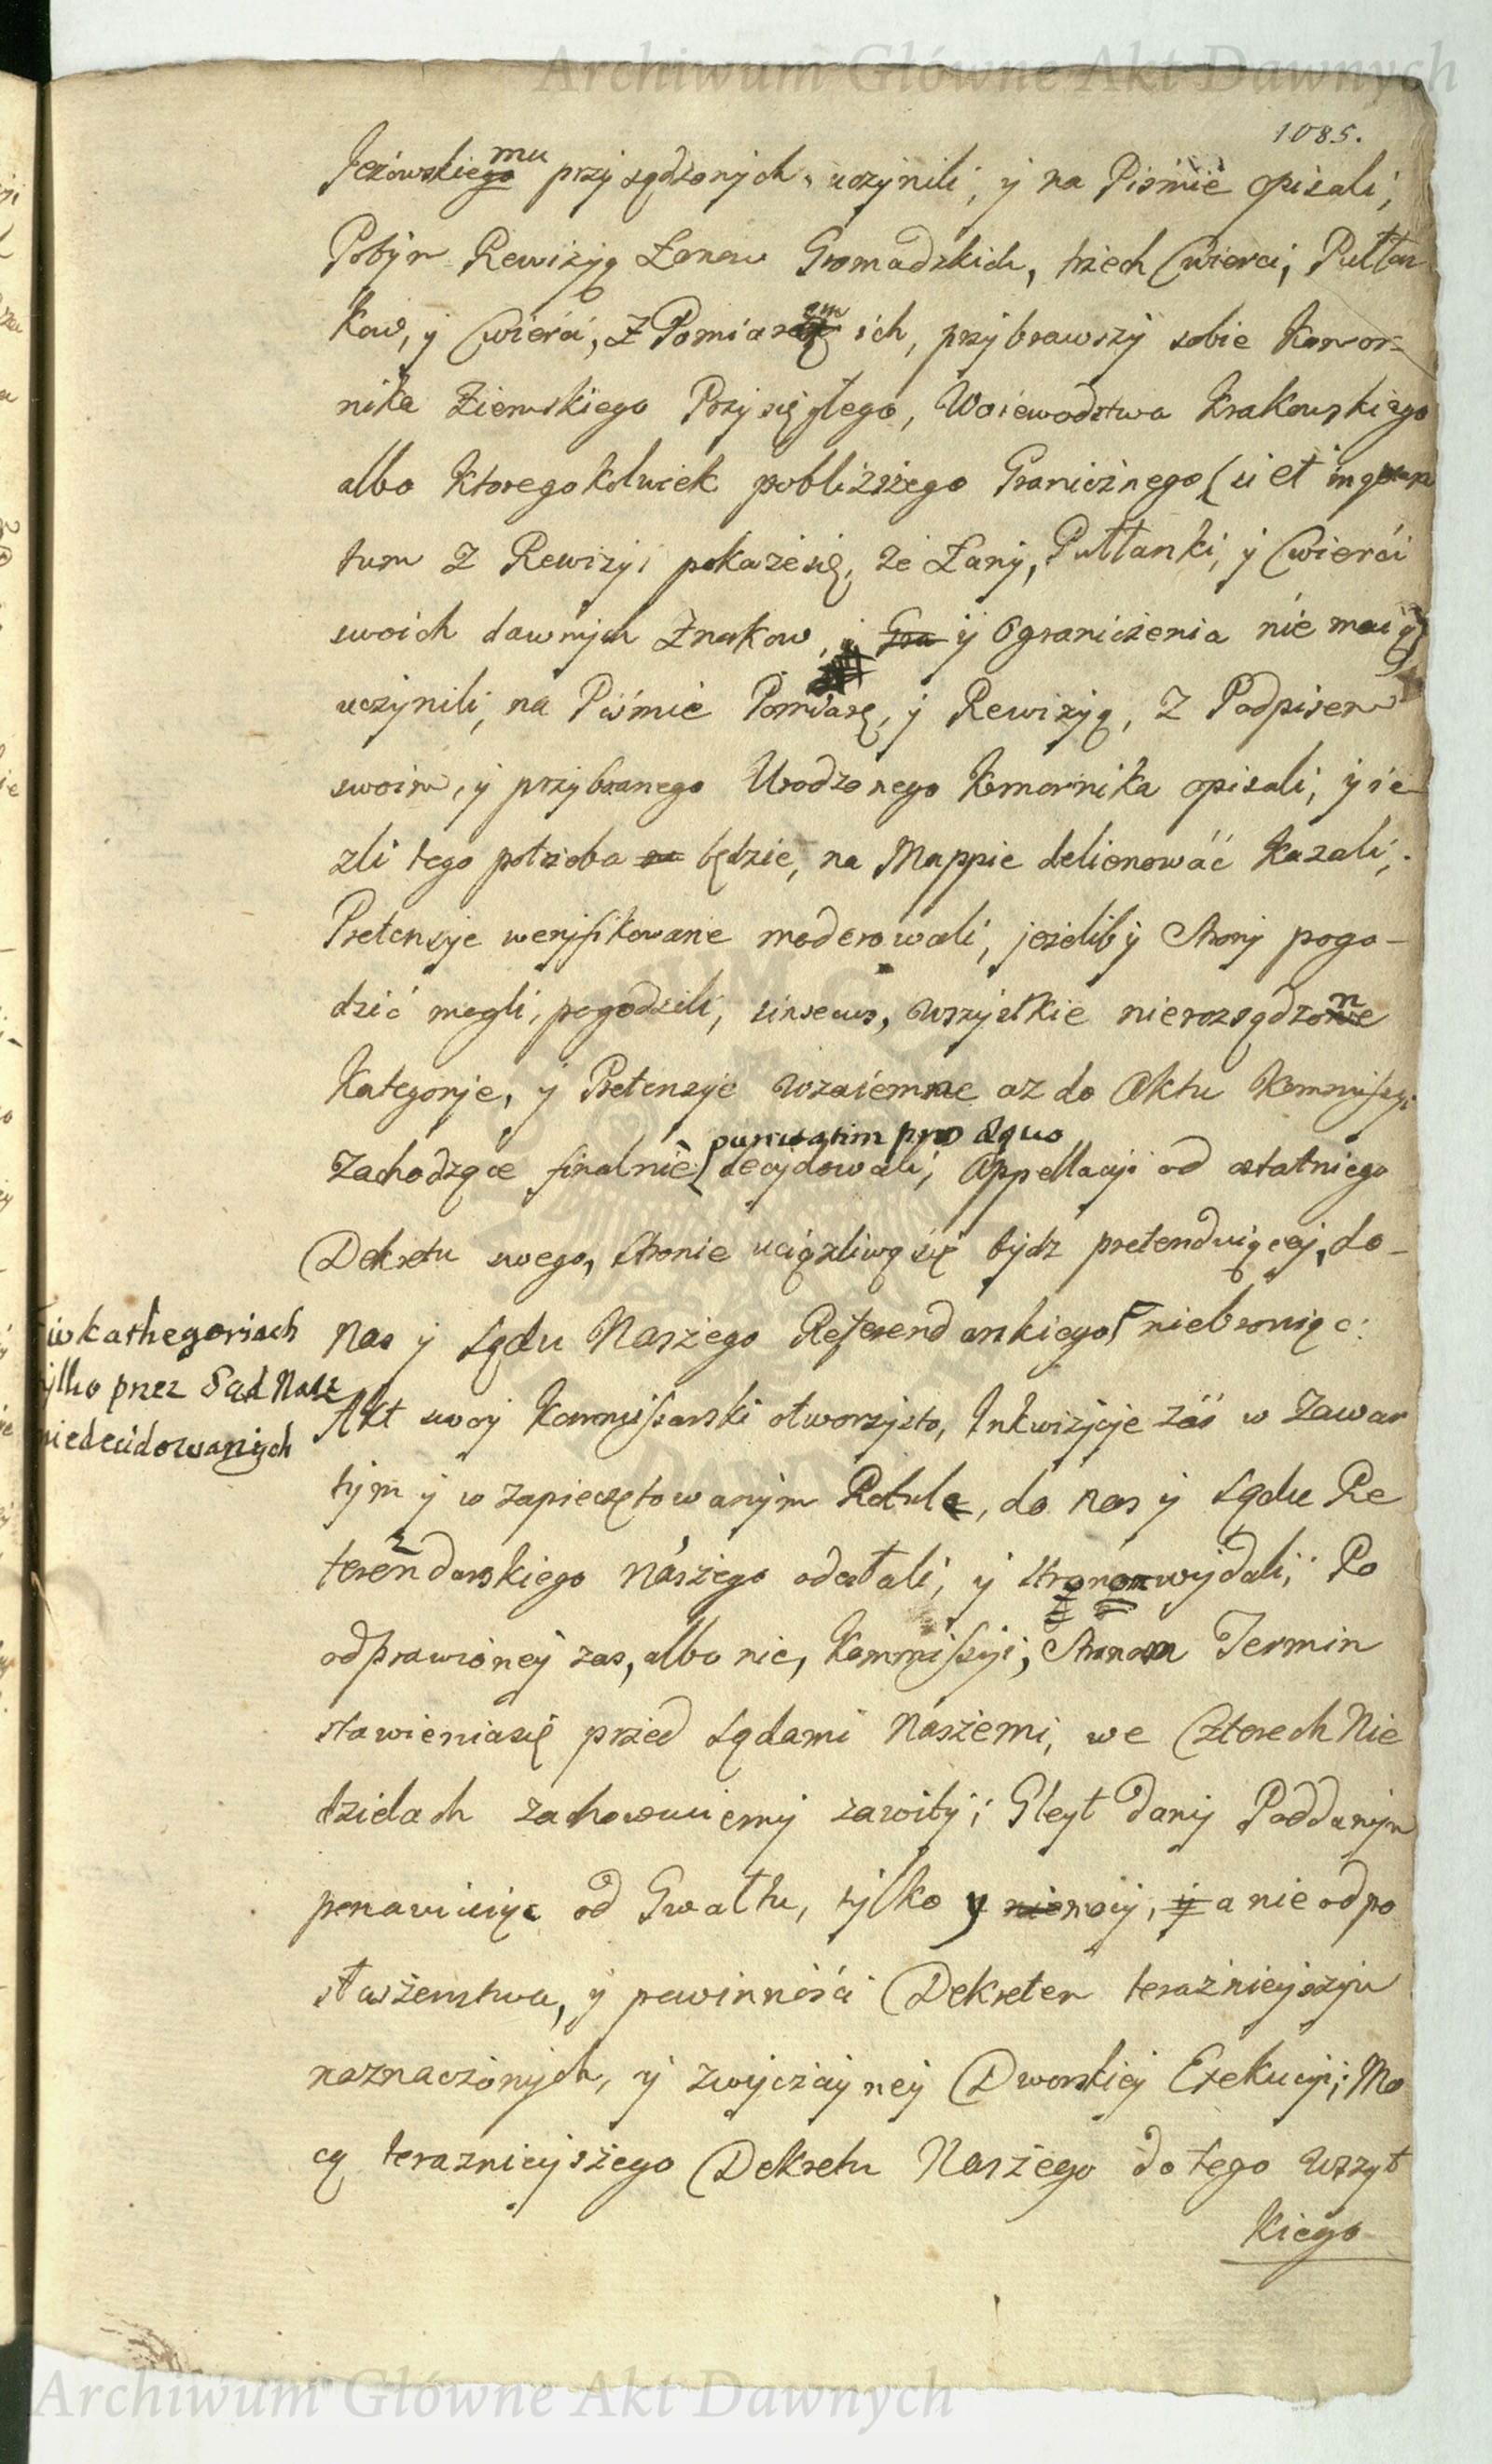 Archiwum Główne Akt Dawnych
1085.
Jeżowskiegomu przysądzonych, uczynili, y na Piśmie opisali;
Potym Rewizyą Łanow Gromadzkich, trzech Cwierci, Pułłan
kow, y Cwierci, z Pomiarem ich, przybrawszy sobie Komor=
nika Ziemskiego Przysięgłego, Woiewodztwa Krakowskiego
albo ktoregokolwiek poblizszego Granicznego (si et in quan
tum z Rewizyi pokaże się, że Łany, Pułłanki, y Cwierci
swoich dawnych Znakow, y Gra y Ograniczenia nie maią)
uczynili, na Piśmie Pomiarę, y Rewizyą, z Podpisem
swoim, y przybranego Urodzonego Komornika opisali, y ie
zli tego potrzeba będzie, na Mappie delionować kazali;
Pretensye weryfikowane moderowali, jeżeliby Strony pogo-
dzić mogli, pogodzili, sin secus, wszystkie nierozsądzone
Kategorje, y Pretensye wzaiemne az do Aktu Kommissyi
punctatim pro Aequo
Zachodzące finalnie decydowali; Appellacyi od ostatniego
Dekretu swego, stronie uciążliwą się bydz pretenduiącey, do-
w kathegoriach
tylko przez Sąd Nasz
niedecidowanych
Nas y Sądu Naszego Referendarskiego niebroniąc:
Akt swoy Kommissarski otworzysto, Inkwizycje zaś w zawar
tym y w zapieczętowanym Rotule, do nas y Sądu Re
ferendarskiego naszego odesłali, y stronom wydali; Po
odprawioney zas, albo nie, Kommissyi, Stronom Termin
stawienia się przed Sądami Naszemi, we Czterech Nie
dzielach zachowuiemy zawity; Gleyt dany Poddanym
ponawiaiąc od Gwałtu, tylko y niemocy, y a nie od po
słuszenstwa, y powinności Dekretem teraznieyszym
naznaczonych, y zwyczayney Dworskiey Exekucyi; Mo
cą teraznieyszego Dekretu Naszego do tego wszyt
kiego
Archiwum Główne Akt Dawnych